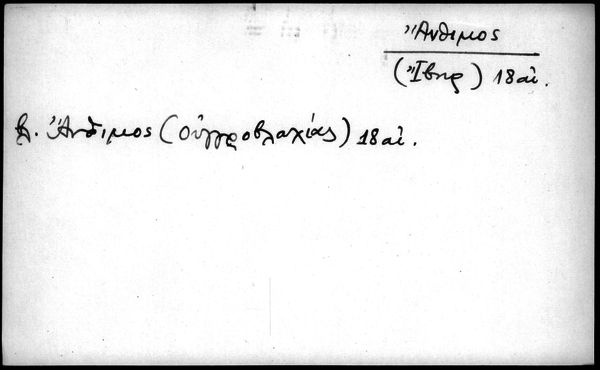 Ἄνθιμος
(Ἴβηρ) 18 αἰ.
βλ. Ἄνθιμος (Οὑγγροβλαχίας) 18 αἰ.